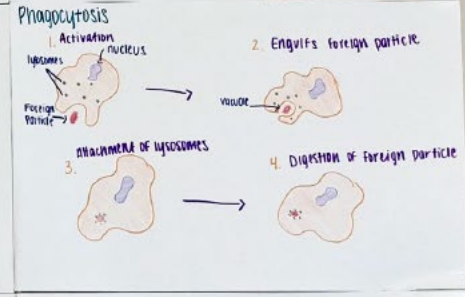 Phagocytosis
1. Activation
nucleus
lysosomes
Foreign
Particle
2. Engulfs foreign particle
vacuole
3. Attachment of lysosomes
4. Digestion of foreign particle